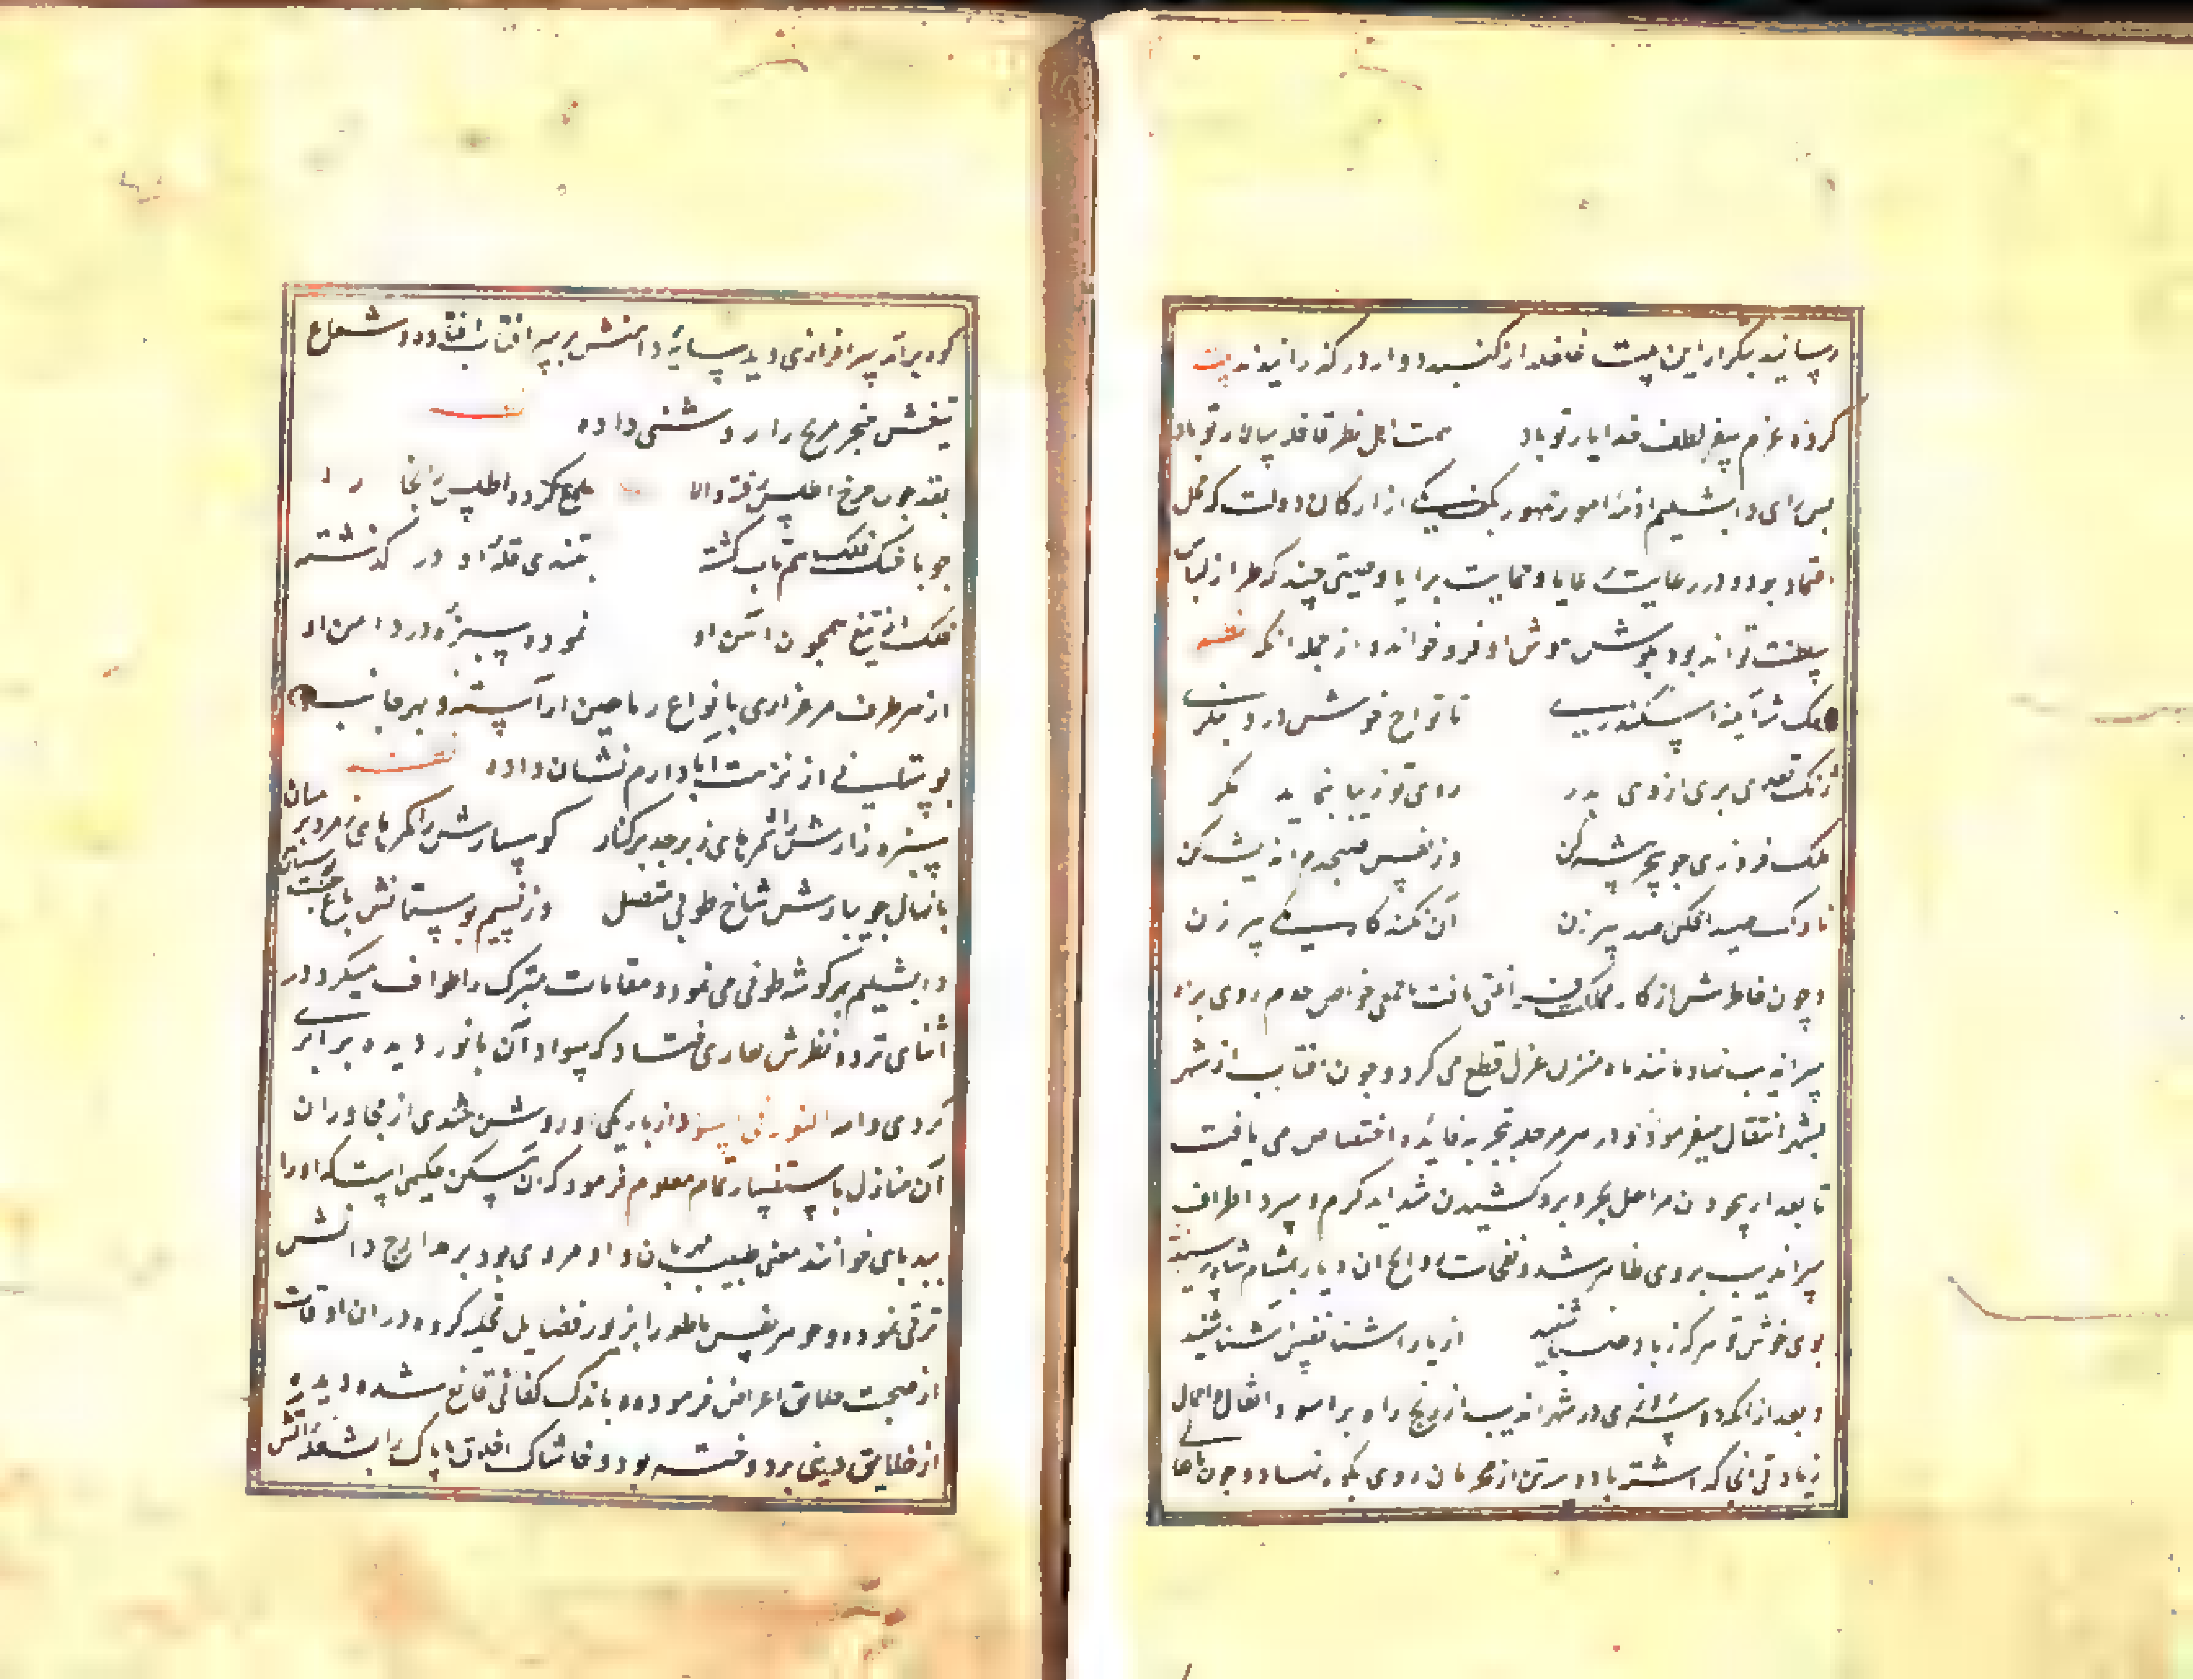 رسانید بتکرار این بیت غلغله از کنبد دوار در کذرانیدند بیت
کرده عزم سفر لطف خدا یار تو باد همت اهل نظر قافله سالار تو باد
پس رای دابشلیم امور جمهور بیکی از ارکان دولت که محل
اعتماد بود و در رعایت رعایا و حمایت برایا وصیتی چند که طراز لباس
سلطنت تواند بود بکوش هوش او فرو خواند و از جمله انکه
ملک ترا آینه اسکندریست تا تو اخ خوش در و بنکری
زنک تعدی بری از وی بدر روی تو زیبا نماید مکر
ملک فروزی جو سحر پیشه کن وز نفس صبحدم اندیشه کن
ناوک صید افکن صد پیر زن آن نکند کاه یکی پیر زن
و چون خاطرش از کار مملکت فراغتی یافت با جمعی خواص خدم روی براه
سراندیب نهاد مانند ماه منزل منزل قطع می کرد و جون افتاب از شهر
بشهر انتقال میفرمود و در هر مرحله تجربه و فائده اختصاص می یافت
تا بعد از پیمودن مراحل بحر و بر و کشیدن شداید کرم و سرد اطراف
سراندیب بر وی ظاهر شد و نفحات روایح ان دیار بمشام شاه رسید
بوی خوش تو هر که ز باد صبا شنید از یار اشنا نفس اشنا شنید
و بعد از انکه دو سه روزی در شهر سراندیب از رنج راه بر اسود اثقال و احمال
زیادتی انجا کذاشته با دو سه تن از محرمان روی بکوه نهاد و جون بالای
کوه برآمد سر افرازی دید سایه دامنش بر سر افتاب افتاده و شعاع
تیغش خنجر مریخ را روشنی داده
بقد جون چرخ اطلس رفته والا ملمع کرده اطلس را انجا
جو با فلک هم تاب کشته بتندی قله او در کذشته
فلک از تیغ همچون آهن او نموده سبزه در دامن او
از هر طرف مرغزاری بانواع ریاحین اراسته و بهر جانب
بوستانی از نزهت اباد ارم نشان داده
سبزه زارش را کمرهای زبرجد بر کنار کوهسارش را کمرهای زمرد بر میان
با نهال جویبارش شاخ طوبی متصل وز نسیم بوستانش باغ جنت
دابشلیم بهر کوشه طوفی می نمود و مقامات متبرک را طواف میکرد در
اثنای تردد نظرش بر غاری افتاد که سواد آن با نور دیده برابری
کردی و النور فی السواد از تاریکی او روشن شدی از مجاوران
آن منازل باستفسار تمام معلوم فرمود که آن مسکن حکیمی است که او را
بیدبای خوانند یعنی طبیب مهربان و او مردی بود بر مدارج دانش
ترقی نموده و جوهر نفس ناطقه را بزیور فضایل محلی کرده در ان اوقات
از صحبت خلایق اعراض فرموده و باندک کفافی قانع شده و دیده
از خلایق دینی بر دوخته بود و خاشاک اخلاق ناپاک را بشعله اتش